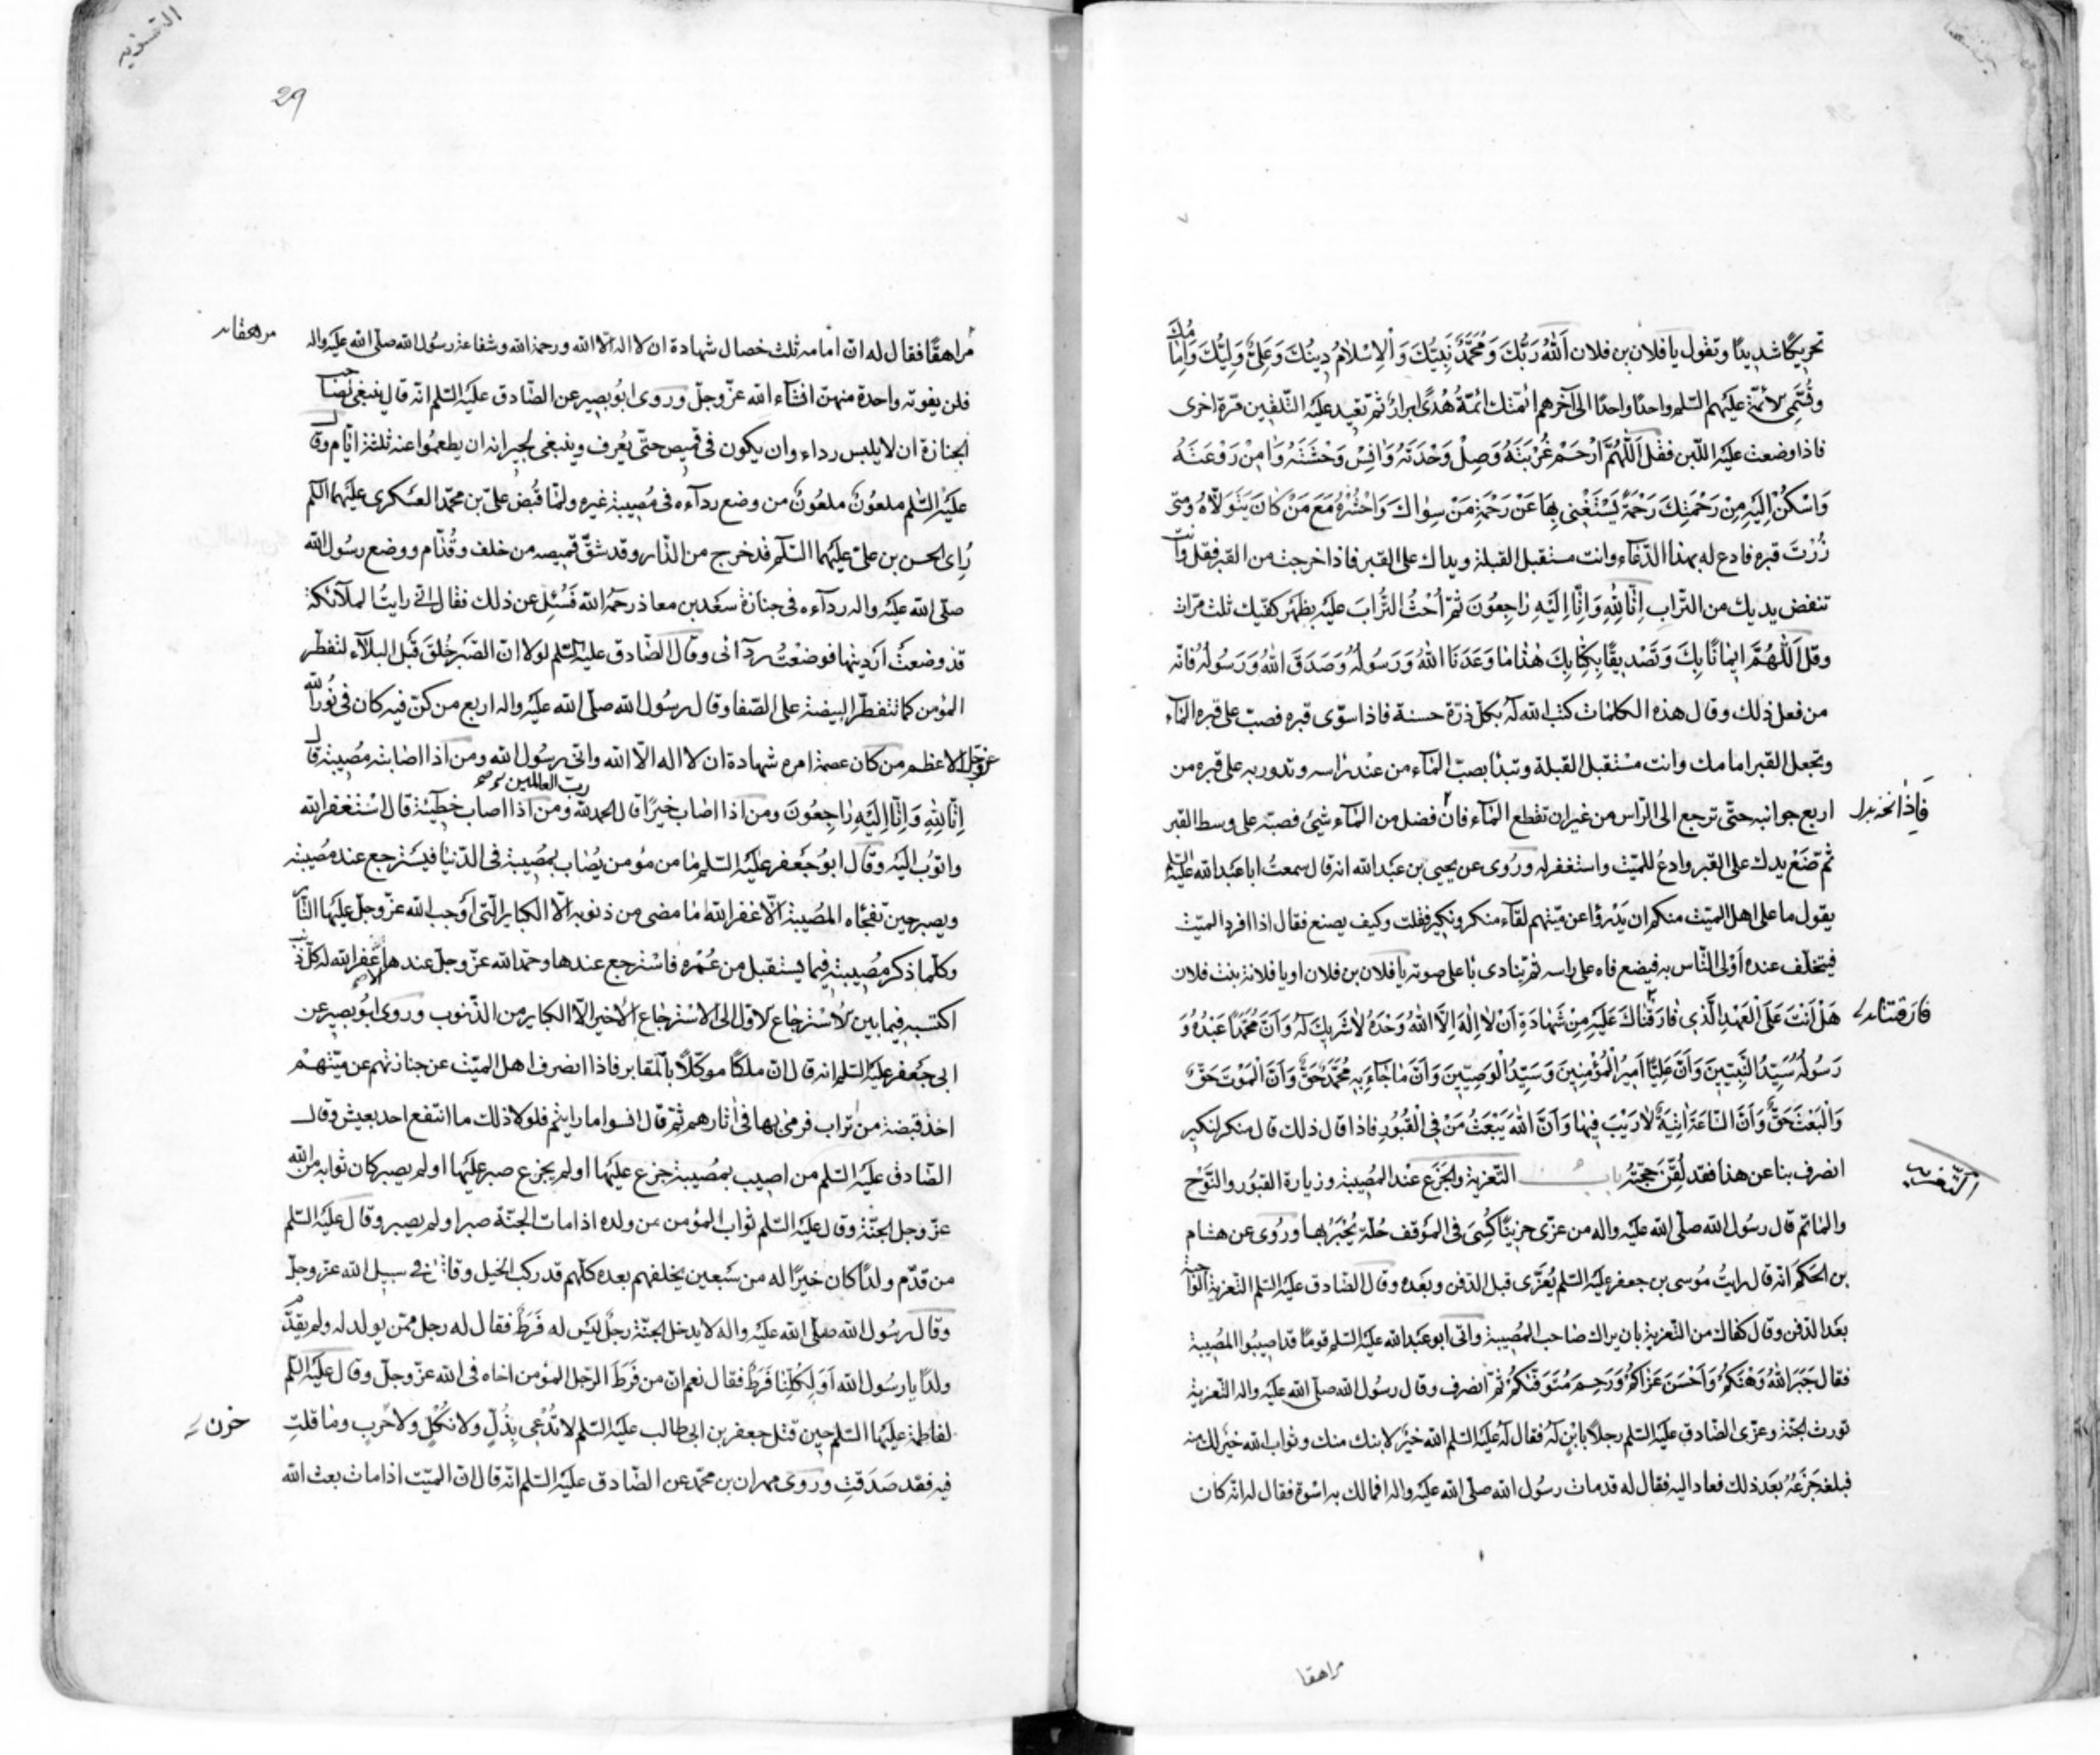 تحريكًا شديدًا وتقول يا فلان بن فلان اَللّٰهُ رَبُّكَ وَمُحَمَّدٌ نَبِيُّكَ وَالْاِسْلَامُ دِينُكَ وَعَلِيٌّ وَلِيُّكَ وَاِمَامُكَ
وتُسَمِّي الأئمّة عليهم السّلم واحدًا واحدًا الى آخرهم ائمّتك ائمّةُ هُدًى ابرارٌ ثمّ تعيد عليه التّلقين مرّة اخرى
فاذا وضعت عليه اللّبن فقل اَللّٰهُمَّ ارْحَمْ غُرْبَتَهُ وَصِلْ وَحْدَتَهُ وَاٰنِسْ وَحْشَتَهُ وَاٰمِنْ رَوْعَتَهُ
وَاَسْكِنْ اِلَيْهِ مِنْ رَحْمَتِكَ رَحْمَةً يَسْتَغْنِي بِهَا عَنْ رَحْمَةِ مَنْ سِوَاكَ وَاحْشُرْهُ مَعَ مَنْ كَانَ يَتَوَلَّاهُ ومتى
زُرْتَ قبره فادع له بهذا الدّعاء وانت مستقبل القبلة ويداك على القبر فاذا خرجت من القبر فقل وانت
تنفض يديك من التّراب اِنَّا لِلّٰهِ وَاِنَّا اِلَيْهِ رَاجِعُونَ ثمّ اُحْثُ التُّرابَ عليه بظهر كفّيك ثلث مرّات
وقل اَللّٰهُمَّ اِيمَانًا بِكَ وَتَصْدِيقًا بِكِتَابِكَ هٰذَا مَا وَعَدَنَا اللّٰهُ وَرَسُولُهُ وَصَدَقَ اللّٰهُ وَرَسُولُهُ فانّه
من فعل ذلك وقال هذه الكلمات كتب الله له بكلّ ذرّة حسنة فاذا سوّى قبره فصبّ على قبره المآء
وتجعل القبر امامك وانت مستقبل القبلة وتبدأ بصبّ المآء من عند راسه وتدور به على قبره من
اربع جوانبه حتّى ترجع الى الرّاس من غير ان تقطع المآء فان فضل من المآء شئ فصبّه على وسط القبر
ثمّ ضَعْ يدك على القبر وادعُ للميّت واستغفر له ورُوى عن يحيى بن عبد الله انه قال سمعتُ ابا عبد الله عليه السّلم
يقول ما على اهل الميّت منكم ان يَدْرؤا عن ميّتهم لقآء منكر ونكير فقلت وكيف يصنع فقال اذا افرد الميّت
فيتخلّف عنده اَوْلى النّاس به فيضع فاه على راسه ثمّ ينادى با على صوته يا فلان بن فلان او يا فلانة بنت فلان
هَلْ اَنْتَ عَلَى الْعَهْدِ الَّذِي فَارَقْنَاكَ عَلَيْهِ مِنْ شَهَادَةِ اَنْ لَا اِلٰهَ اِلَّا اللّٰهُ وَحْدَهُ لَا شَرِيكَ لَهُ وَاَنَّ مُحَمَّدًا عَبْدُهُ وَ
رَسُولُهُ سَيِّدُ النَّبِيِّينَ وَاَنَّ عَلِيًّا اَمِيرُ الْمُؤْمِنِينَ وَسَيِّدُ الْوَصِيِّينَ وَاَنَّ مَا جَآءَ بِهِ مُحَمَّدٌ حَقٌّ وَاَنَّ الْمَوْتَ حَقٌّ
وَالْبَعْثَ حَقٌّ وَاَنَّ السَّاعَةَ اٰتِيَةٌ لَا رَيْبَ فِيهَا وَاَنَّ اللّٰهَ يَبْعَثُ مَنْ فِي الْقُبُورِ فاذا قال ذلك قال منكر لنكير
انصرف بنا عن هذا فقد لُقِّنَ حُجّتُهُ باب التّعزية والجَزَع عند المُصيبة وزيارة القبور والنَّوْح
والمأتم قال رسُول الله صلّى الله عليه واله من عزّى حزينًا كُسِىَ فى المَوقف حُلّة يُحْبَرُ بها ورُوى عن هشام
بن الحَكَم انه قال رايتُ مُوسى بن جعفر عليه السّلم يُعَزّى قبل الدّفن وبَعده وقال الصّادق عليه السّلم التّعزية الواجبة
بعَد الدّفن وقال كفاك من التّعزية بان يراك صاحب المُصيبة واتى ابو عبد الله عليه السّلم قومًا قد اصيبُوا المُصيبة
فقال جَبَرَ اللّٰهُ وَهْنَكُمْ وَاَحْسَنَ عَزَاكُمْ وَرَحِمَ مُتَوَفَّيكُمْ ثمّ انصرف وقال رسُول الله صلّى الله عليه واله التّعزية
تورث الجنّة وعزّى الصّادق عليه السّلم رجلاً بابْنٍ لَهُ فقال لَهُ عليه السّلم الله خَيْرٌ لابنك منك وثواب الله خيرٌ لك منه
فبلغه جَزَعُهُ بعَد ذلك فعاد اليه فقال له قد مات رسُول الله صلّى الله عليه واله افما لك به اسْوة فقال له انّه كان
التعزية
مراهقا
29
مُراهقًا فقال له انّ امامه ثلث خصال شهادة ان لا اله الّا الله ورحمة الله وشفاعة رسُول الله صلّى الله عليه واله
فلن يفوته واحدة منهنّ انشآء الله عزّ وجلّ وروى ابُو بصير عن الصّادق عليه السّلم انّه قال ينبغى لصاحب
الجنازة ان لا يلبس رداء وان يكون فى قميص حتّى يُعرف وينبغى لجيرانه ان يطعمُوا عنه ثلثة ايّام وقال
عليه السّلم ملعُونٌ ملعُونٌ من وضع ردآءه فى مُصيبة غيره ولمّا قُبض علىّ بن محمّد العسكرى عليهما السّلم
رُاى الحسن بن علىّ عليهما السّلم قد خرج من الدّار وقد شقّ قميصه من خلف وقُدّام ووضع رسُول الله
صلّى الله عليه واله ردآءه فى جنازة سَعد بن معاذ رحمه الله فسُئِل عن ذلك فقال انّى رايتُ الملآئكة
قد وضعتْ اَرْدِيتها فوضعْتُ ردآئى وقال الصّادق عليه السّلم لولا انّ الصّبر خُلِقَ قبل البلآء لتفطّر
المؤمن كما تتفطّر البيضة على الصّفا وقال رسُول الله صلّى الله عليه واله اربع من كنّ فيه كان فى نُور الله
عزّ وجلّ الاعظم من كان عصمة امره شهادة ان لا اله الّا الله وانّى رسُول الله ومن اذا اصابته مُصيبة قال
اِنَّا لِلّٰهِ وَاِنَّا اِلَيْهِ رَاجِعُونَ ومن اذا اصاب خيرًا قال الحمد لله رب العالمين ومن اذا اصاب خطيئة قال اَسْتغفر الله
واتوُب اليه وقال ابوُ جَعفر عليه السّلم ما من مؤمن يُصاب بمُصيبة فى الدّنيا فيسْترجع عند مُصيبته
ويصبر حين تفجَأه المصيبة الّا غفر الله ما مضى من ذنوبه الّا الكباير الّتى اَوجب الله عزّ وجلّ عليها النّار
وكلّما ذكر مُصيبته فيما يستقبل من عُمْره فاسْترجع عندها وحمد الله عزّ وجلّ عندها غفر الله له كلّ ذنب
اكتسبه فيما بين الاسْترجاع الاوّل الى الاسْترجاع الاخير الّا الكباير من الذّنوب وروى ابُو بصير عن
ابى جَعفر عليه السّلم انه قال انّ ملكًا موكّلاً بالمقابر فاذا انصرف اهل الميّت عن جنازتهم عن ميّتهمْ
اخذ قبضة من تراب فرمى بها فى آثارهم ثمّ قال انسوا ما رايتم فلولا ذلك ما انتفع احد بعيش وقال
الصّادق عليه السّلم من اصيب بمُصيبة جزع عليها او لم يجزع صبر عليها او لم يصبر كان ثوابه من الله
عزّ وجل الجنّة وقال عليه السّلم ثواب المؤمن من ولده اذا مات الجنّة صبر او لم يصبر وقال عليه السّلم
من قدّم ولدًا كان خيرًا له من سَبعين يخلفهم بعده كلّهم قد ركب الخيل وقاتل فى سبيل الله عزّ وجلّ
وقال رسُول الله صلّى الله عليه واله لا يدخل الجنّة رجلٌ ليس له فَرَطٌ فقال له رجل ممّن يولد له ولم يقدّم
ولدًا يا رسُول الله اَوَ لِكُلّنا فَرَطٌ فقال نعم انّ من فَرَط الرّجل المؤمن اخاه فى الله عزّ وجلّ وقال عليه السّلم
لفاطمة عليها السّلم حين قتل جعفر بن ابى طالب عليه السّلم لا تَدْعى بِذُلٍّ ولا ثُكْلٍ ولا حَربٍ وما قلتِ
فيه فقد صَدَقتِ وروى مهران بن محمّد عن الصّادق عليه السّلم انّه قال انّ الميّت اذا مات بعث الله